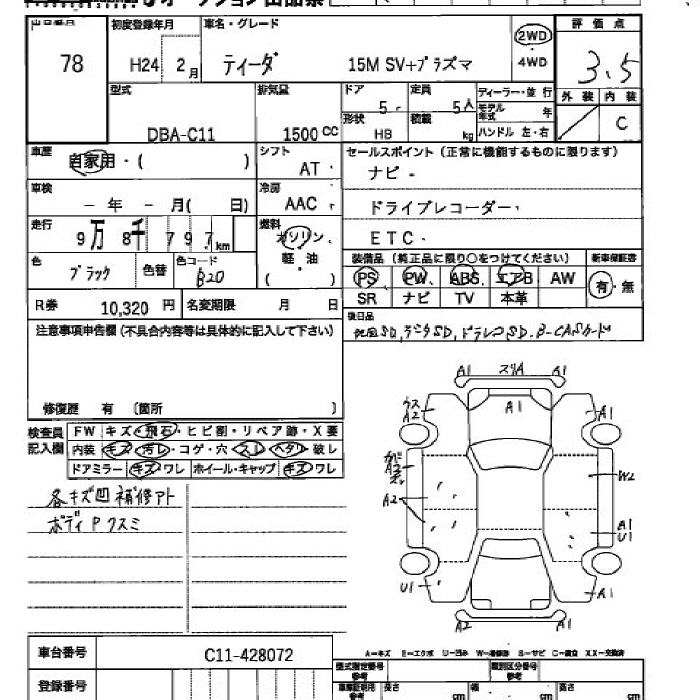 オークション出品票
出品番号 初度登録年月 車名・グレード 2WD 評価点
78 H24 2月 ティーダ 15M SV+プラズマ 4WD 3.5
型式 排気量 ドア 5 定員 5人 ディーラー・並行 外装 内装
DBA-C11 1500 CC 形状 HB 積載 kg モデル年式 年 C
ハンドル 左・右
車歴 自家用・( ) シフト AT・ セールスポイント(正常に機能するものに限ります)
ナビ・
車検 - 年 - 月( 日) 冷房 AAC ドライブレコーダー、
走行 9万8千797km 燃料 ガソリン・ ETC、
軽・油 ( )
色 ブラック 色替 色コード B20
装備品(純正品に限り○をつけてください) 新車保証書
PS PW ABS エアB AW 有・無
SR ナビ TV 本革
R券 10,320 円 名変期限 月 日
後日品
地図SD,ナビSD,ドラレコSD.B-CASカード
注意事項申告欄(不具合内容等は具体的に記入して下さい)
修復歴 有 〔箇所 〕
検査員記入欄 FW キズ・飛石・ヒビ割・リペア跡・X要
内装 キズ・汚レ・コゲ・穴 スレ・ヘタリ・破レ
ドアミラー キズ・ワレ ホイール・キャップ キズ・ワレ
各キズ凹補修アト
ボディPクスミ
A1 スリA A1
A1
ウス A2 A1
A2
W2
A2
A1 U1
U1 A1
A2 A1
A-キズ E-エクボ U-凹ミ W-補修跡 S-サビ C-腐食 XX-交換済
車台番号 C11-428072
登録番号
型式指定番号 参考 類別区分番号 参考
車庫証明用 参考 長さ cm 幅 cm 高さ cm